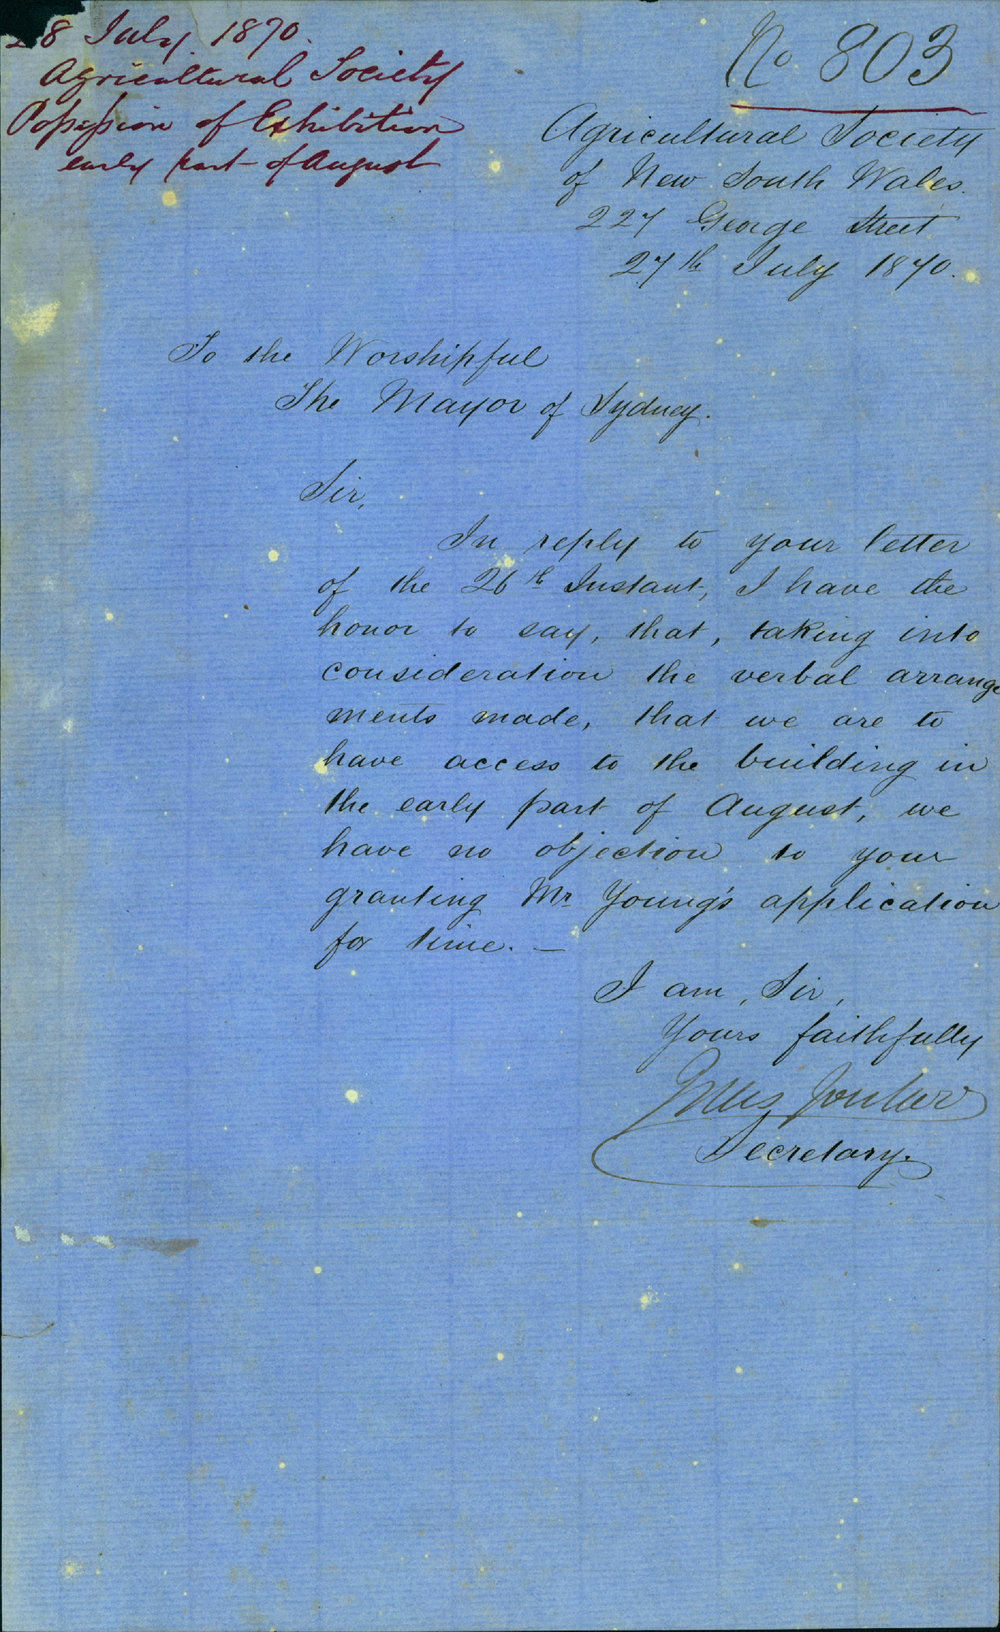 28 July. 1870.
Agricultural Society
Possession of Exhibition
early part of August
No 803
Agricultural Society
of New South Wales.
227 George Street
27th July 1870.
To the Worshipful
The Mayor of Sydney.
Sir,
In reply to your letter
of the 26th Instant, I have the
honor to say, that, taking into
consideration the verbal arrange
ments made, that we are to
have access to the building in
the early part of August, we
have no objection to your
granting Mr Young's application
for time. —
I am, Sir,
Yours faithfully
Jules Joubert
Secretary.